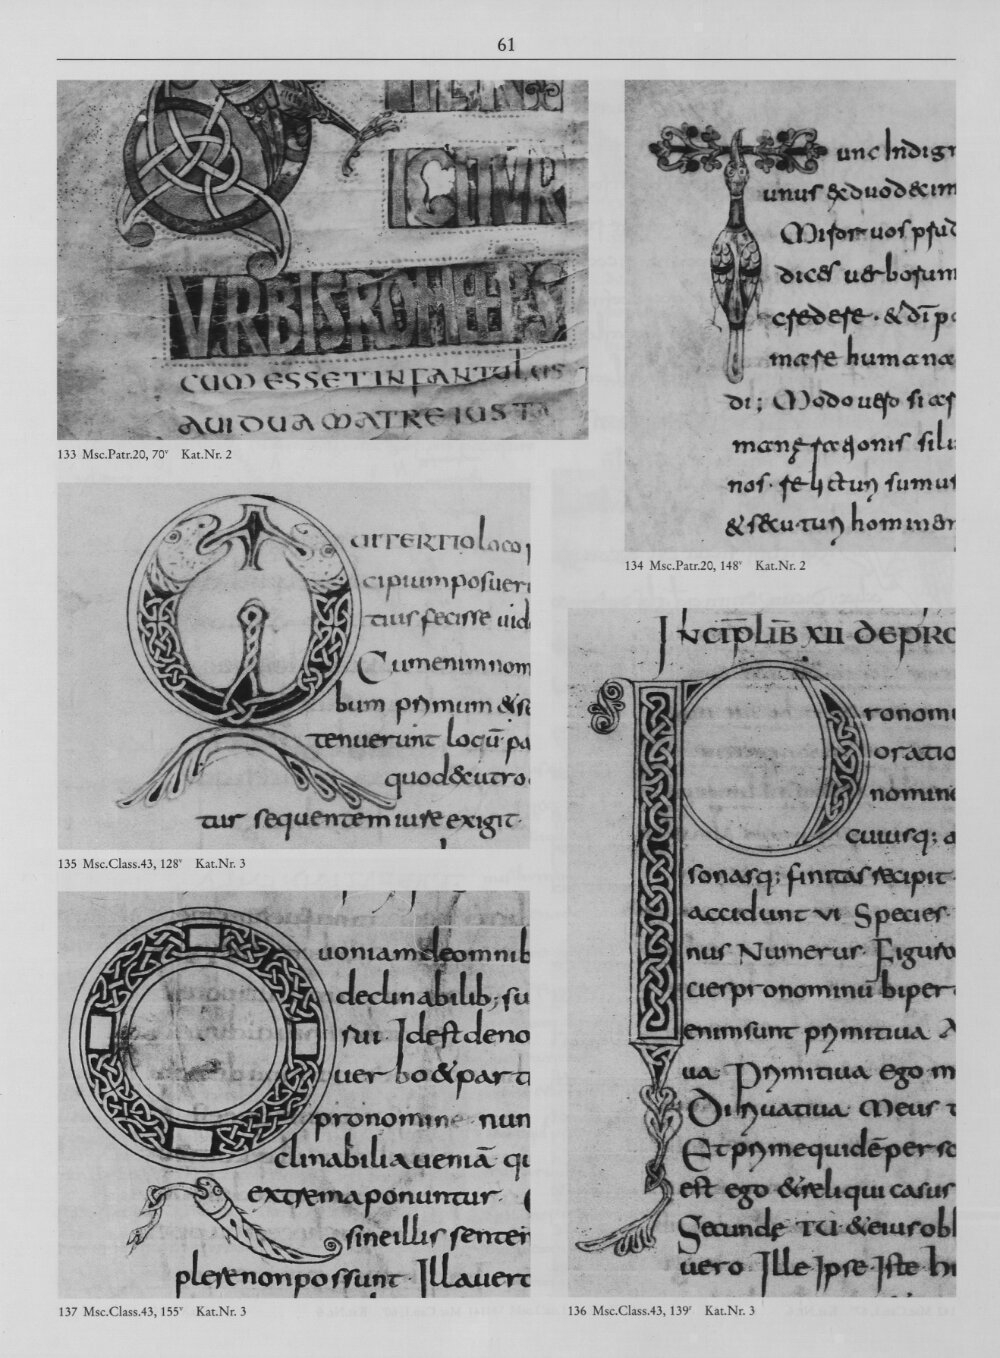 61
CITUR
URBIS ROME EPS
CUM ESSET INFANTULUS
A UIDUA MATRE IUSTA
133 Msc.Patr.20, 70v Kat.Nr. 2
unc Indigr
unus & duod&im
Misor uos psud
dices uerbosum
credere · & dīp
mare humana
di; Modo uero si
nos·
sumus
homin
134 Msc.Patr.20, 148v Kat.Nr. 2
Q
UI TERTIO loco
cipium posuer
tius fecisse uid
Cum enim nom
bum primum &
tenuerunt locū pa
quod&utro
tur sequentem iure exigit·
135 Msc.Class.43, 128v Kat.Nr. 3
INCIP̄ LIB̄ XII DE PRO
P
ronomi
oratio
nomine
cuiusq; a
sonasq; finitas recipit·
accidunt VI Species·
nus Numerus· Figura
cies pronominū biper
enim sunt primitiua
ua· Primitiua ego m
Diriuatiua Meus t
Et prime quidē perso
est ego & reliqui casus
Secundę TU· & eius obl
uero Ille Ipse Iste h
136 Msc.Class.43, 139r Kat.Nr. 3
Q
uoniam de omnib
declinabilib; su
sui· Idest deno
uerbo & part
pronomine nun
clinabilia ueniā qu
extrema ponuntur·
sine illis senten
plere non possunt· Illa uero
137 Msc.Class.43, 155v Kat.Nr. 3